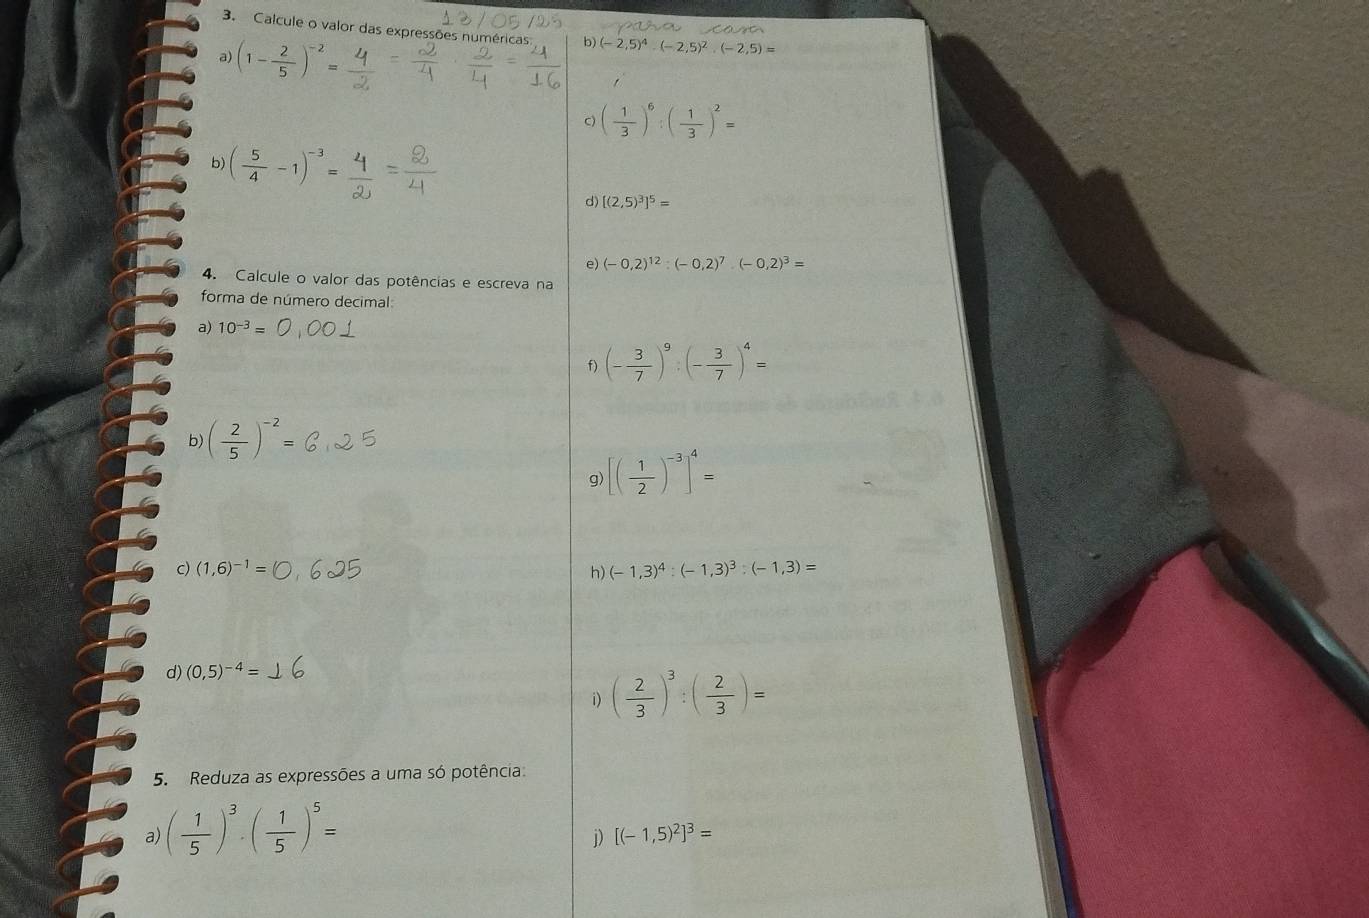 13/05/25 para casa
3. Calcule o valor das expressões numéricas:
a) (1 − 2/5)⁻² = 4/2 = 2/4 · 2/4 = 4/16
b) (5/4 − 1)⁻³ = 4/2 = 2/4
4. Calcule o valor das potências e escreva na
forma de número decimal:
a) 10⁻³ = 0,001
b) (2/5)⁻² = 6,25
c) (1,6)⁻¹ = 0,625
d) (0,5)⁻⁴ = 16
5. Reduza as expressões a uma só potência:
a) (1/5)³ . (1/5)⁵ =
b) (− 2,5)⁴ . (− 2,5)² . (− 2,5) =
c) (1/3)⁶ : (1/3)² =
d) [(2,5)³]⁵ =
e) (− 0,2)¹² : (− 0,2)⁷ . (− 0,2)³ =
f) (− 3/7)⁹ : (− 3/7)⁴ =
g) [(1/2)⁻³]⁴ =
h) (− 1,3)⁴ : (− 1,3)³ : (− 1,3) =
i) (2/3)³ : (2/3) =
j) [(− 1,5)²]³ =